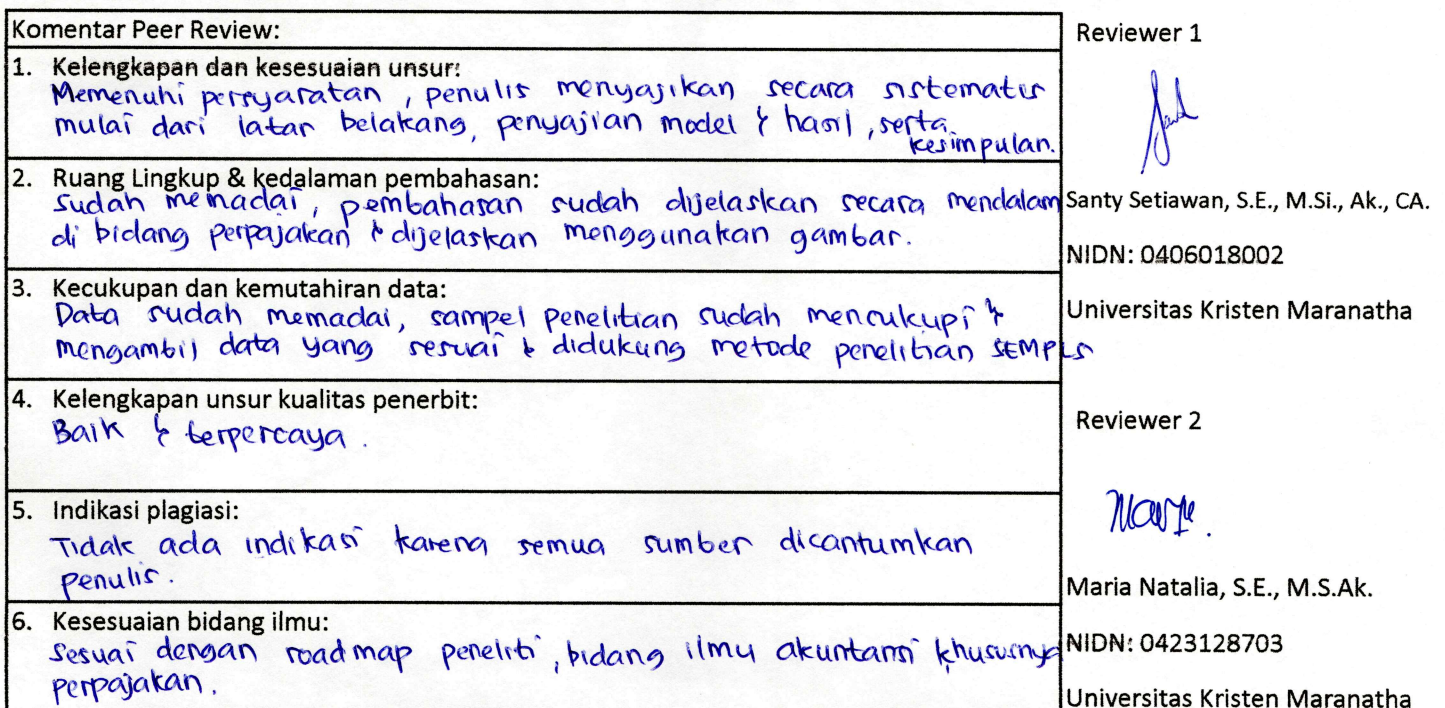 Komentar Peer Review:
1. Kelengkapan dan kesesuaian unsur:
Memenuhi persyaratan, penulis menyajikan secara sistematis
mulai dari latar belakang, penyajian model & hasil, serta
kesimpulan.
2. Ruang Lingkup & kedalaman pembahasan:
Sudah memadai, pembahasan sudah dijelaskan secara mendalam
di bidang perpajakan & dijelaskan menggunakan gambar.
3. Kecukupan dan kemutahiran data:
Data sudah memadai, sampel penelitian sudah mencukupi &
mengambil data yang sesuai & didukung metode penelitian SEMPLS
4. Kelengkapan unsur kualitas penerbit:
Baik & terpercaya.
5. Indikasi plagiasi:
Tidak ada indikasi karena semua sumber dicantumkan
penulis.
6. Kesesuaian bidang ilmu:
Sesuai dengan roadmap peneliti, bidang ilmu akuntansi khususnya
perpajakan.
Reviewer 1
Santy Setiawan, S.E., M.Si., Ak., CA.
NIDN: 0406018002
Universitas Kristen Maranatha
Reviewer 2
Maria Natalia, S.E., M.S.Ak.
NIDN: 0423128703
Universitas Kristen Maranatha